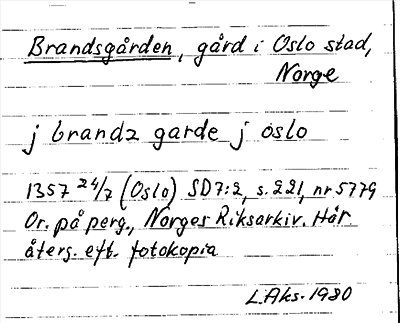 Brandsgården, gård i Oslo stad,
Norge
j brandz garde j oslo
1357 24/7 (Oslo) SD7:2, s. 221, nr 5779
Or. på perg., Norges Riksarkiv. Här
återg. eft. fotokopia
L.Aks. 1980